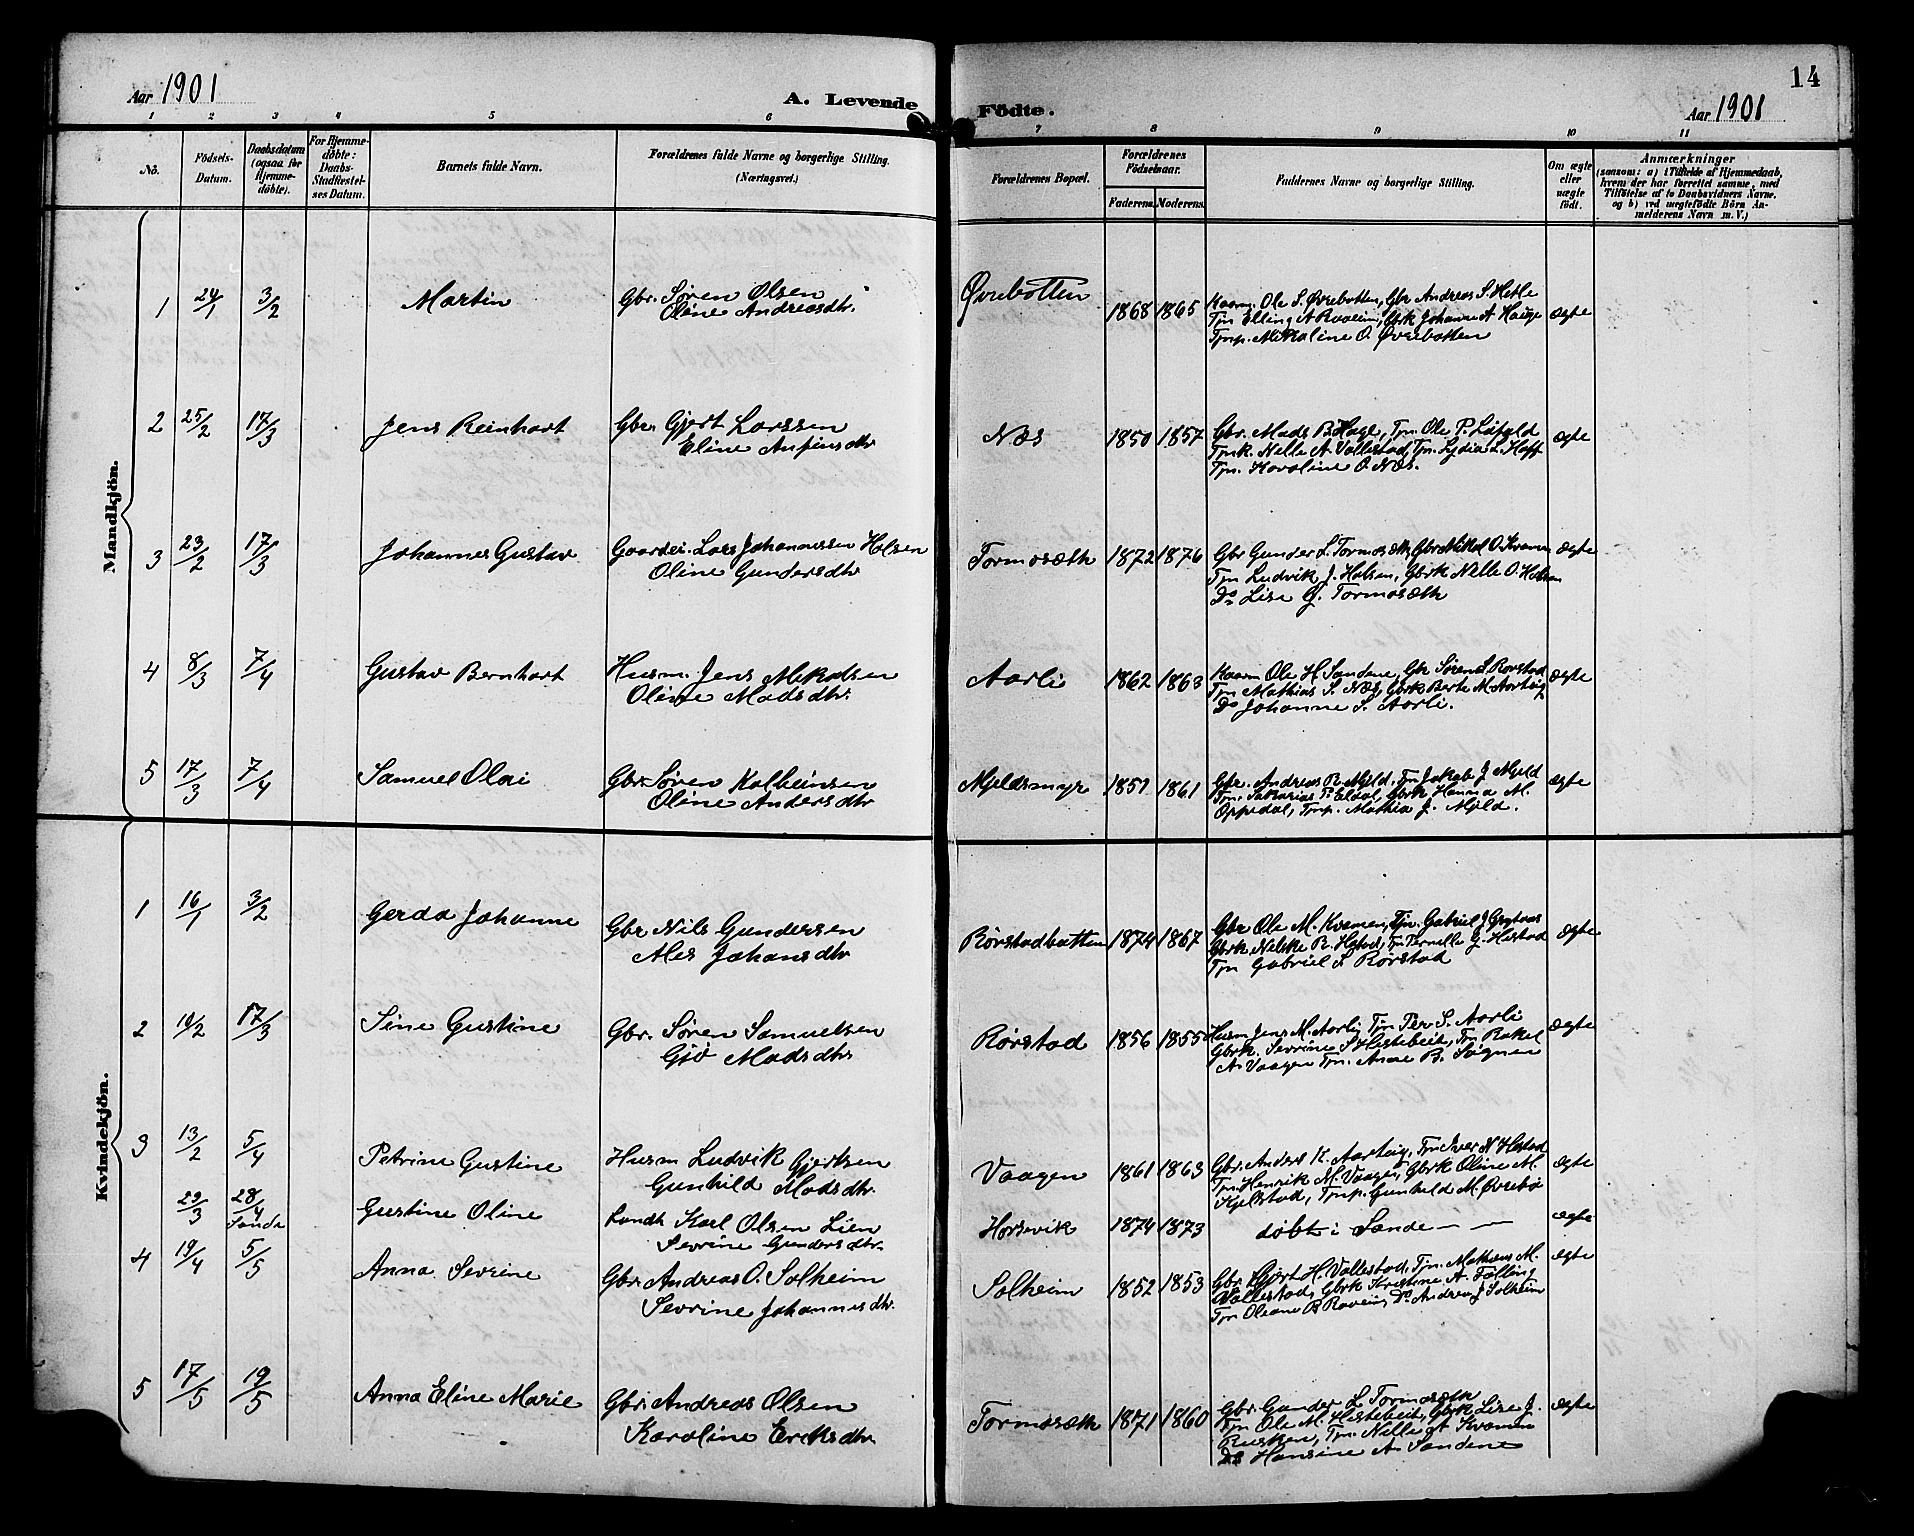 14
Aar 1901
A. Levende Födte.
Aar 1901
1 2 3 4 5 6 7 8 9 10 11
No.
Födsels-
Datum.
Daabsdatum
(ogsaa for
Hjemme-
døbte).
For Hjemme-
døbte:
Daabs-
Stadfæstel-
ses Datum.
Barnets fulde Navn.
Forældrenes fulde Navne og borgerlige Stilling.
(Næringsvei.)
Forældrenes Bopæl.
Forældrenes
Födselsaar.
Faderens. Moderens.
Faddernes Navne og borgerlige Stilling.
Om ægte
eller
uægte
födt.
Anmærkninger
(saasom: a) i Tilfælde af Hjemmedaab,
hvem der har forrettet samme, med
Tilföielse af to Daabsvidners Navne,
og b) ved uægtefödte Börn An-
melderens Navn m. V.)
Mandkjön.
1 24/1 3/2 Martin Gbr. Søren Olsen
Oline Andreasdtr.
Øvrebotten 1868 1865 Kaarm. Ole S. Øvrebotten, Gbr Andreas S. Hetle
Tjn Elling A Rvoleim, Gbrk Johanne A Hauge
Tjnp. Mikaline O. Øvrebotten
ægte
2 25/2 17/3 Jens Reinhart Gbr. Gjert Larssen
Eline Anfinsdtr
Næs 1850 1857 Gbr. Mads B Hage, Tjn. Ole P. Leifeld
Tjnk. Nille A. Vallestad, Tjn. Lydia L. Hoff
Tjn. Karoline O. Næs.
ægte
3 23/2 17/3 Johannes Gustav Gaardbr. Lars Johannessen Holsen
Oline Gundersdtr
Tormosæth 1872 1876 Gbr Gunder L. Tormosæth, Gbr Mikal O. Kvamen
Tjn Ludvik J. Holsen, Gbrk Nille O. Holsen
Do Lise G. Tormosæth
ægte
4 8/3 7/4 Gustav Bernhart Husm. Jens Mikalsen
Oline Madsdtr.
Aarli 1862 1863 Kaarm Ole H. Sandene, Gbr Søren S. Rørstad
Tjn Mathias S. Næs, Gbrk Berte M. Aartvig
Do Johanne S. Aarli.
ægte
5 17/3 7/4 Samuel Olai Gbr. Søren Kolbeinsen
Oline Andersdtr
Mjeldsmyr 1857 1861 Gbr. Andreas R. Mjeld, Tjn Jakob J Mjeld
Tjn. Sakarias P. Eldal, Gbrk Hanna M.
Oppedal, Tjnp. Mathea J. Mjeld.
ægte
Kvindekjön.
1 16/1 3/2 Gerda Johanne Gbr Nils Gundersen
Ales Johansdtr
Rørstadbotten 1874 1867 Gbr Ole M. Kvamen, Tjn. Gabriel J Grytaas
Gbrk. Nilske R. Hstad, Tjn Pernille G. Hestad
Tjn Gabriel S. Rørstad
ægte
2 10/2 17/3 Sine Gustine Gbr. Søren Samuelsen
Gjø Madsdtr
Rørstad 1856 1855 Husm Jens M. Aarli, Tjn Per S. Aarli
Gbrk. Sevrine S Hestebeit, Tjn Rakel
A. Vaagen Tjn. Anne B. Sognen
ægte
3 13/2 5/4 Petrine Gustine Husm Ludvik Gjertsen
Gunhild Madsdtr.
Vaagen 1861 1863 Gbr. Anders K. Aartvig, Tjn Iver N Hestad
Tjn. Henrik M. Vaagen, Gbrk Oline M.
Kjelstad, Tjnp. Gunhild M. Øvrebø
ægte
29/3 28/4 Sande Gustine Oline Landh Karl Olsen Lien
Sevrine Gundersdtr.
Horsevik 1874 1873 døbt i Sande — — ægte
4 19/4 5/5 Anna Sevrine Gbr. Andreas O. Solheim
Sevrine Johannesdtr.
Solheim 1852 1853 Gbr Gjert H. Vallestad, Tjn. Mathias M.
Vallestad, Gbrk Kristine A. Fölling
Tjn Oleane B Roveim, Do Andrea J Solheim
ægte
5 17/5 19/5 Anna Eline Marie Gbr. Andreas Olsen
Karoline Eriksdtr
Tormosæth 1871 1860 Gbr. Gunder L Tormosæth
Tjn Ole M. Hestebeit, Gbrk Lise J.
Rusken, Tjn. Nille A Kvamen
Do Hansine A. Sandene
ægte